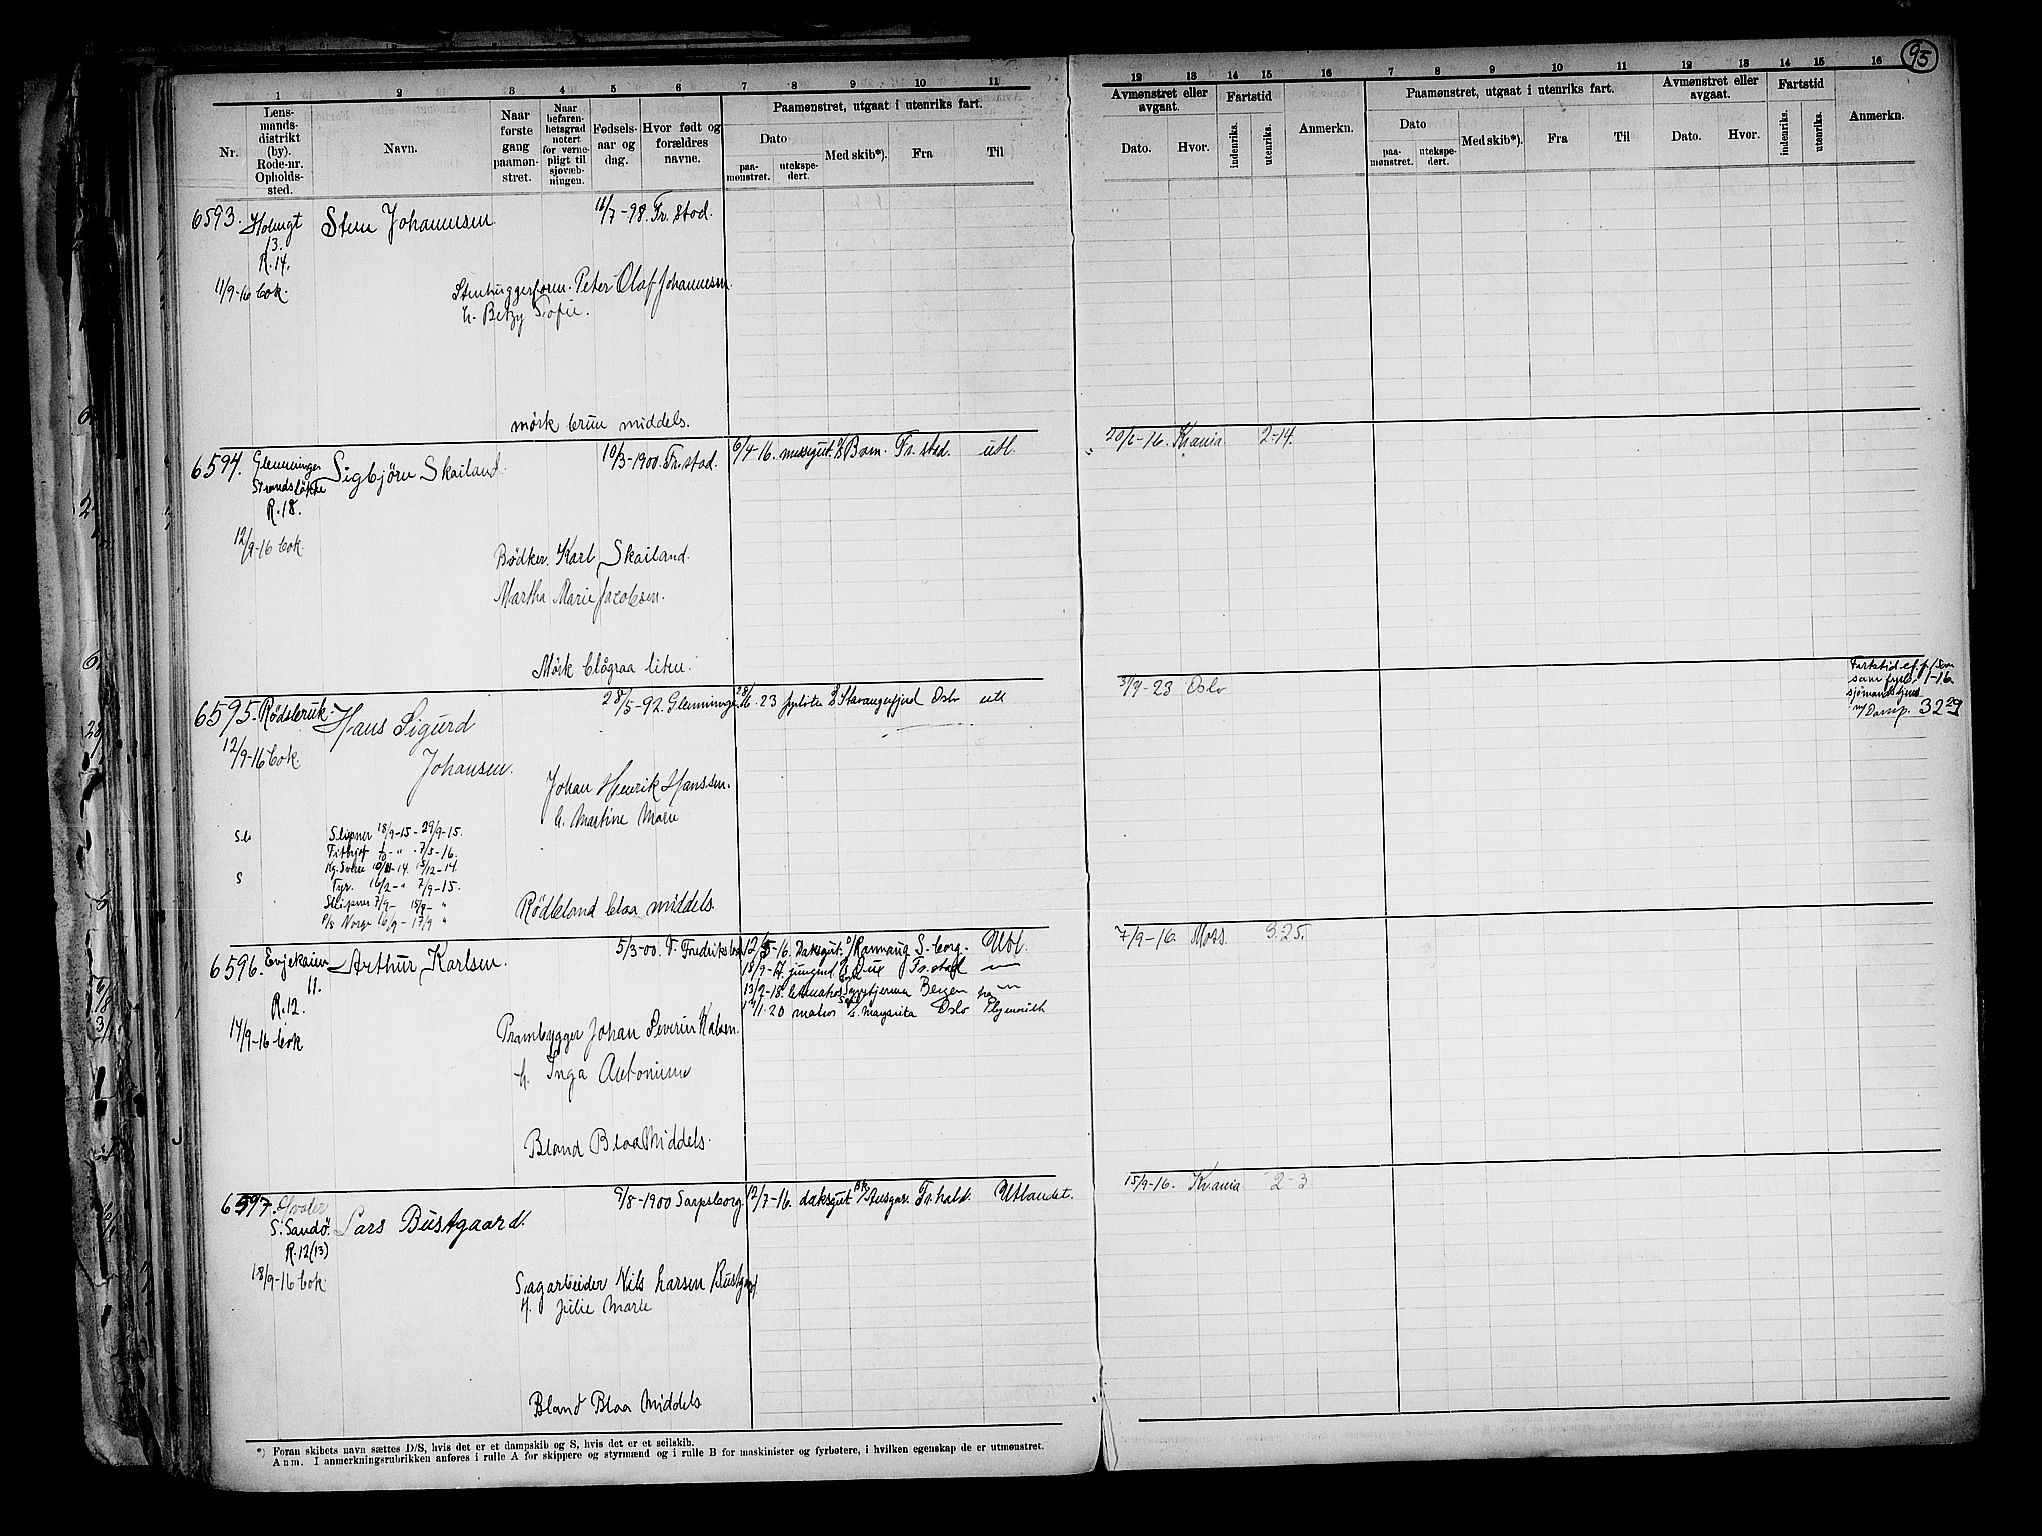 95
1 2 3 4 5 6 7 8 9 10 11
12 13 14 15 16 7 8 9 10 11 12 13 14 15 16
Nr.
Lens-
mands-
distrikt
(by).
Rode-nr.
Opholds-
sted.
Navn.
Naar
første
gang
paamøn-
stret.
Naar
befaren-
hetsgrad
notert
for verne-
pligt til
sjøvæb-
ningen.
Fødsels-
aar og
dag.
Hvor født og
forældres
navne.
Paamønstret, utgaat i utenriks fart.
Dato
paa-
mønstret.
utekspe-
dert.
Med skib*).
Fra
Til
Avmønstret eller
avgaat.
Dato.
Hvor.
Fartstid
indenriks.
utenriks.
Anmerkn.
Paamønstret, utgaat i utenriks fart.
Dato
paa-
mønstret.
utekspe-
dert.
Med skib*).
Fra
Til
Avmønstret eller
avgaat.
Dato.
Hvor.
Fartstid
indenriks.
utenriks.
Anmerkn.
6593. Holmgt Sten Johannesen 11/7-98. Fr.stad.
13.
R.14.
11/9-16 bok.
Stenhuggerform. Peter Olaf Johannesen
h. Betzy Sofie.
mörk brun middels.
6594. Glemminge Sigbjörn Skailand. 10/3-1900. Fr.stad. 6/4-16. messegut. Bom. Fr.stad. utl. 20/6-16. Kr.ania 2-14.
Strandsløkke
R.18.
12/9-16 bok.
Bödker. Karl Skailand.
Martha Marie Jacobsen.
Mørk blågraa liten.
6595. Rødsbruk. Hans Sigurd 28/5-92. Glemminge. 28/6.23 Stavangerfjord Oslo utl 3/9-23 Oslo
Fartstid
som fyrb. 1-16.
32 29
12/9-16 bok. Johansen.
Johan Henrik Hanssen.
h. Martine Marie
Sleipner 18/9-15 - 29/9-15.
7/5-16.
Kg. Sverre 15/12-14.
Tyr. 16/2- " 7/9-15.
S
Sleipner 7/9- 15/9- "
P/s Norge 16/9- 17/9 "
Rödbland blaa middels.
6596. Evjekaien Arthur Karlsen. 5/3-00. V. Fredriksborg 12/5-16. Daksgut. Rannaug S.borg. Utl. 7/9-16. Moss. 3.25.
11. 18/9-17. jungmd Dux Fr.stad "
R.12. 13/2-18. Bergen "
17/1.20 matros S. Margarita Oslo Plymouth
14/9-16 bok
Prambygger Johan Severin Karlsen.
h. Inga Antonime
Bland Blaa Middels.
6597. Hvaler Lars Bustgaard. 9/8-1900 Sarpsborg. 12/7-16. daksgut Ansgar. Fr.hald. Utlandet. 15/9-16. Kr.ania 2-3
S. Sandö.
R.12(13)
18/9-16 bok.
Sagarbeider Nils Larsen Bustgaard.
h. Julie Marie
Bland Blaa Middels
*) Foran skibets navn sættes D/S, hvis det er et dampskib og S, hvis det er et seilskib.
Anm. I anmerkningsrubrikken anføres i rulle A for skippere og styrmænd og i rulle B for maskinister og fyrbøtere, i hvilken egenskap de er utmønstret.